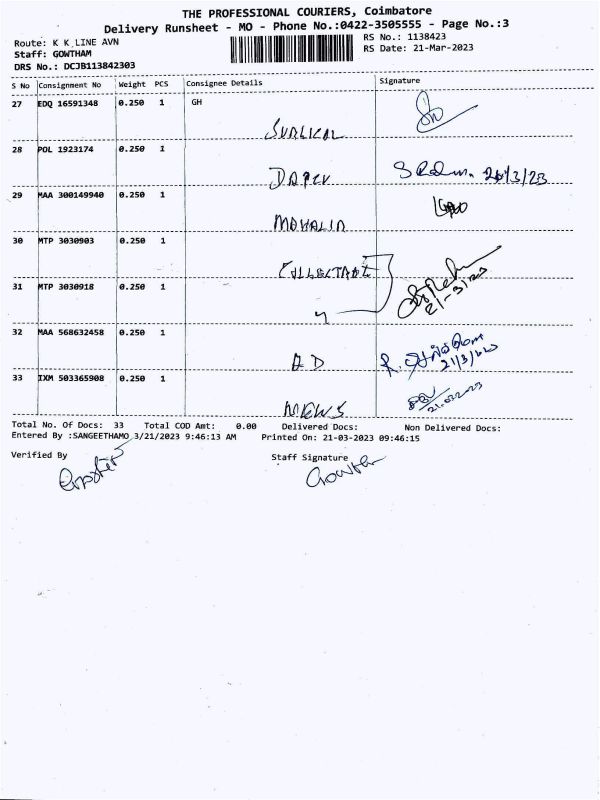 THE PROFESSIONAL COURIERS, Coimbatore
Delivery Runsheet - MO - Phone No.:0422-3505555 - Page No.:3
Route: K K LINE AVN
Staff: GOWTHAM
DRS No.: DCJB113842303
RS No.: 1138423
RS Date: 21-Mar-2023
S No Consignment No Weight PCS Consignee Details Signature
27 EDQ 16591348 0.250 1 GH
SURLICAL
28 POL 1923174 0.250 1
21/3/23
29 MAA 300149940 0.250 1
30 MTP 3030903 0.250 1
31 MTP 3030918 0.250 1
21-3/23
32 MAA 568632458 0.250 1
A D
21/3/23
33 IXM 503365908 0.250 1
NEWS
21.03.2023
Total No. Of Docs: 33 Total COD Amt: 0.00 Delivered Docs: Non Delivered Docs:
Entered By :SANGEETHAMO 3/21/2023 9:46:13 AM Printed On: 21-03-2023 09:46:15
Verified By Staff Signature
Gowtham